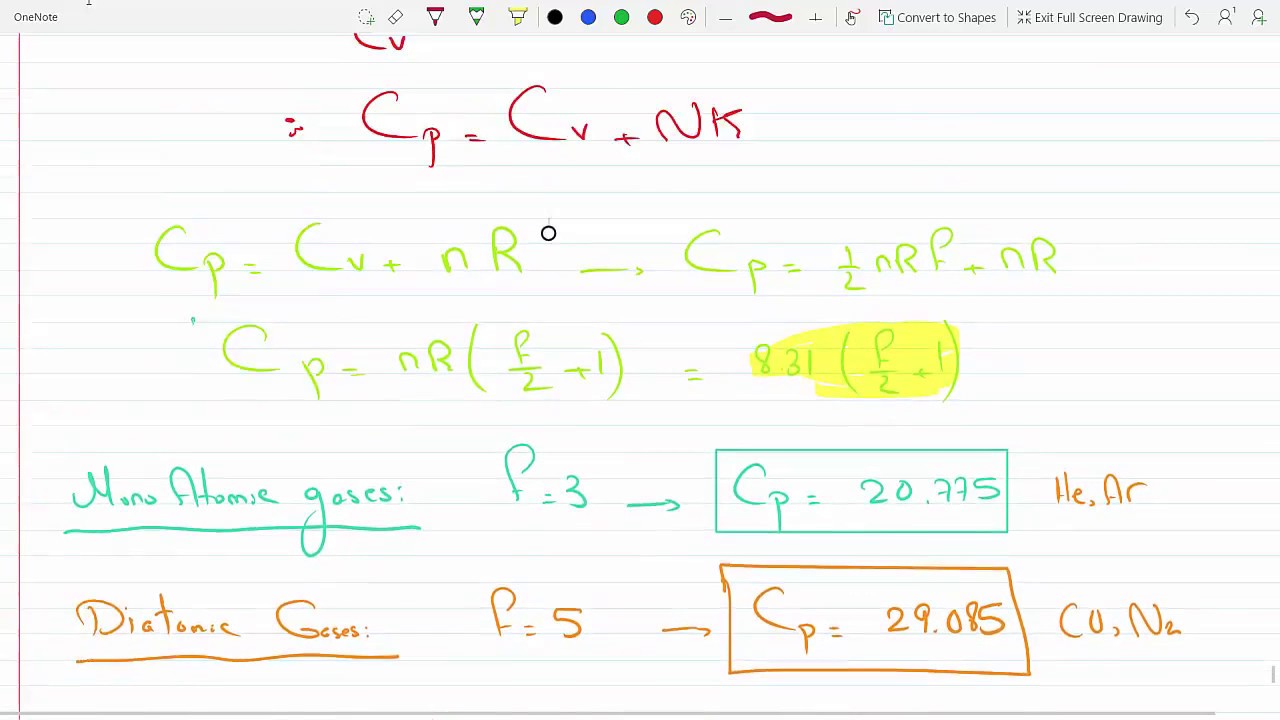 OneNote
Convert to Shapes
Exit Full Screen Drawing
Cv
∴ Cp = Cv + NK
Cp = Cv + nR → Cp = 1/2 nRf + nR
Cp = nR(f/2 + 1) = 8.31 (f/2 + 1)
Mono Atomic gases: f = 3 → Cp = 20.775 He, Ar
Diatomic Gases: f = 5 → Cp = 29.085 CO, N2